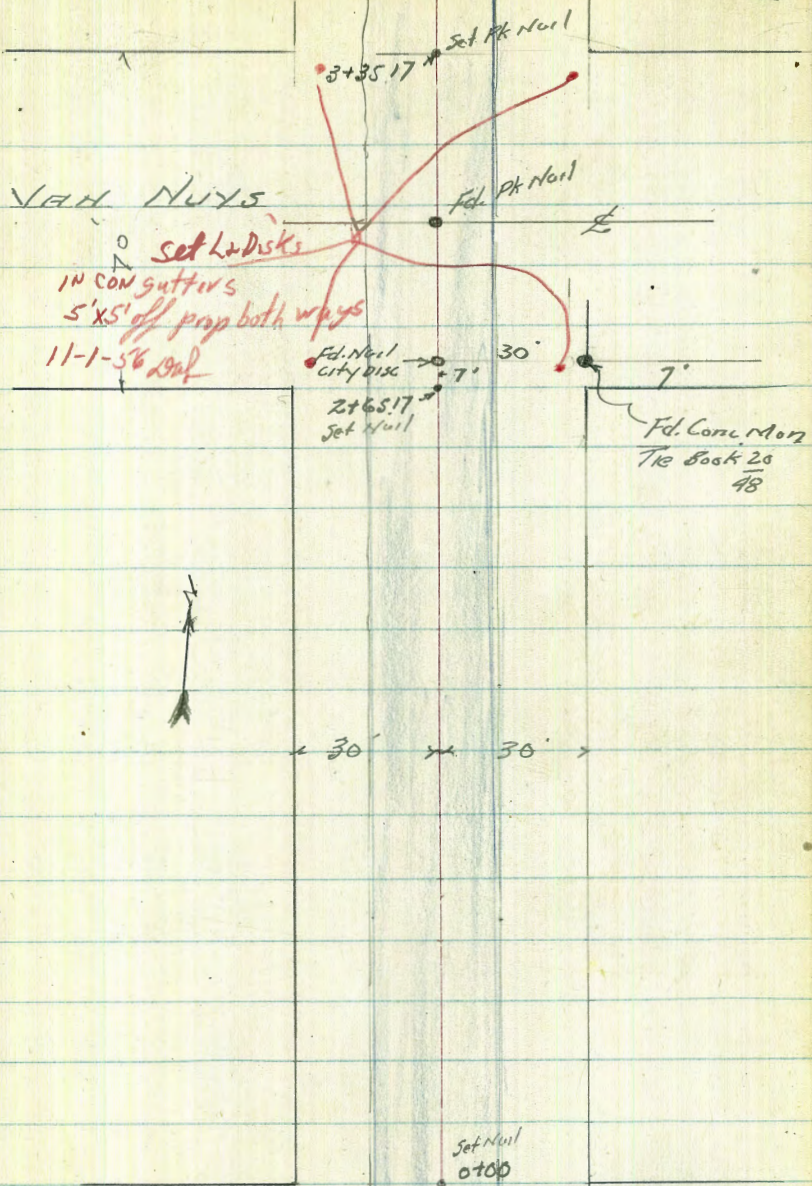 Set Pk Nail
3+35.17
Fd. Pk Nail
VAN NUYS
℄
70
set L+Disks
IN CON gutters
5'x5' off prop both ways
11-1-56
Fd. Nail
City Disc
30'
7'
7'
2+65.17
Set Nail
Fd. Conc. Mon
Tie Book 20
48
N
30'
30'
Set Nail
0+00